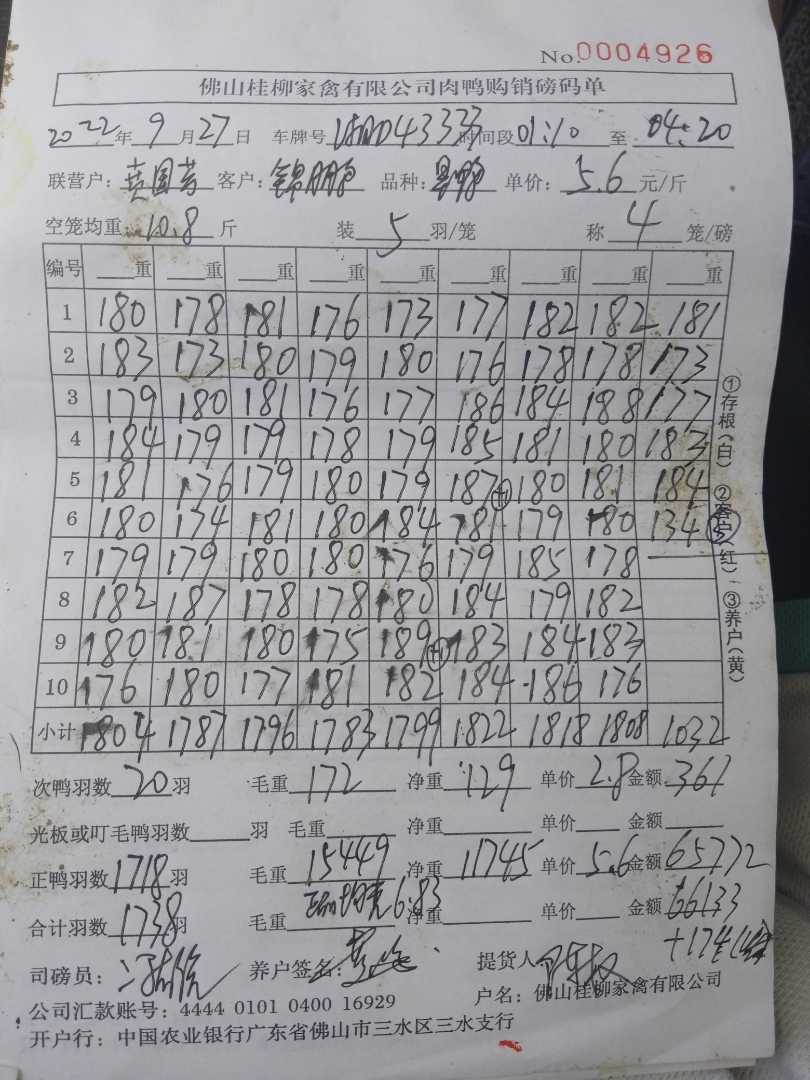 No.0004926
佛山桂柳家禽有限公司肉鸭购销磅码单
2022年9月27日 车牌号 04333 时间段01:10至04:20
联营户: 客户:锦 品种: 单价:5.6元/斤
空笼均重:10.8斤 装5羽/笼 称4笼/磅
编号 重 重 重 重 重 重 重 重 重
1 180 178 181 176 173 177 182 182 181
2 183 173 180 179 180 176 178 178 173
3 179 180 181 176 177 186 184 188 177
4 184 179 179 178 179 185 181 180 183
5 181 176 179 180 179 187 +1 180 181 184
6 180 174 181 180 184 181 179 180 134 ⑤
7 179 179 180 180 176 179 185 178
8 182 187 178 178 180 184 179 182
9 180 181 180 175 189 +1 183 184 183
10 176 180 177 181 182 184 186 176
小计 1804 1787 1796 1783 1799 1822 1818 1808 1032
①存根(白) ②客户(红) ③养户(黄)
次鸭羽数20羽 毛重172 净重129 单价2.8 金额361
光板或叮毛鸭羽数 羽 毛重 净重 单价 金额
正鸭羽数1718羽 毛重15449 净重11745 单价5.6 金额65772
合计羽数1738羽 毛重 均重6.83 净重 单价 金额66133
+174
司磅员: 养户签名: 提货人
公司汇款账号: 4444 0101 0400 16929 户名: 佛山桂柳家禽有限公司
开户行: 中国农业银行广东省佛山市三水区三水支行